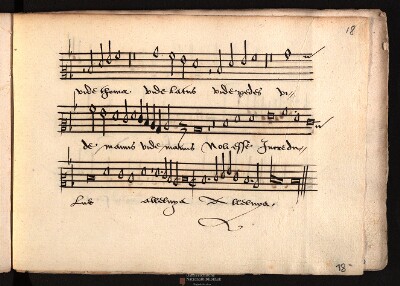 18
vide thoma vide latus vide pedes vi
de manus vide manus Noli esse Incredu
lus alleluya Alleluya
18